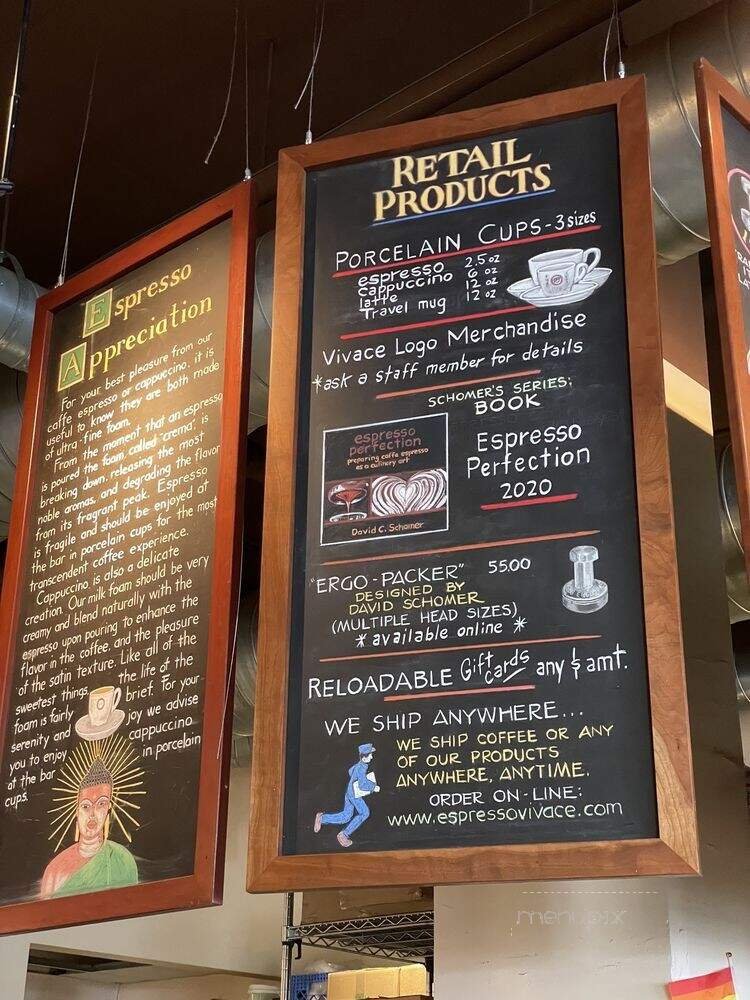 Espresso
Appreciation
For your best pleasure from our
caffe espresso or cappuccino, it is
useful to know they are both made
of ultra-fine foam.
From the moment that an espresso
is poured the foam, called "crema", is
breaking down, releasing the most
noble aromas, and degrading the flavor
from its fragrant peak. Espresso
is fragile and should be enjoyed at
the bar in porcelain cups for the most
transcendent coffee experience.
Cappuccino is also a delicate
creation. Our milk foam should be very
creamy and blend naturally with the
espresso upon pouring to enhance the
flavor in the coffee, and the pleasure
of the satin texture. Like all of the
sweetest things, the life of the
foam is fairly brief. For your
serenity and joy we advise
you to enjoy cappuccino
at the bar in porcelain
cups.
RETAIL
PRODUCTS
PORCELAIN CUPS - 3 sizes
espresso 2.5 oz
cappuccino 6 oz
latte 12 oz
Travel mug 12 oz
Vivace Logo Merchandise
*ask a staff member for details
SCHOMER'S SERIES:
BOOK
espresso
perfection
preparing caffe espresso
as a culinary art
David C. Schomer
Espresso
Perfection
2020
"ERGO-PACKER" 55.00
DESIGNED BY
DAVID SCHOMER
(MULTIPLE HEAD SIZES)
*available online*
RELOADABLE Gift cards any $ amt.
WE SHIP ANYWHERE...
WE SHIP COFFEE OR ANY
OF OUR PRODUCTS
ANYWHERE, ANYTIME.
ORDER ON-LINE:
www.espressovivace.com
menupix